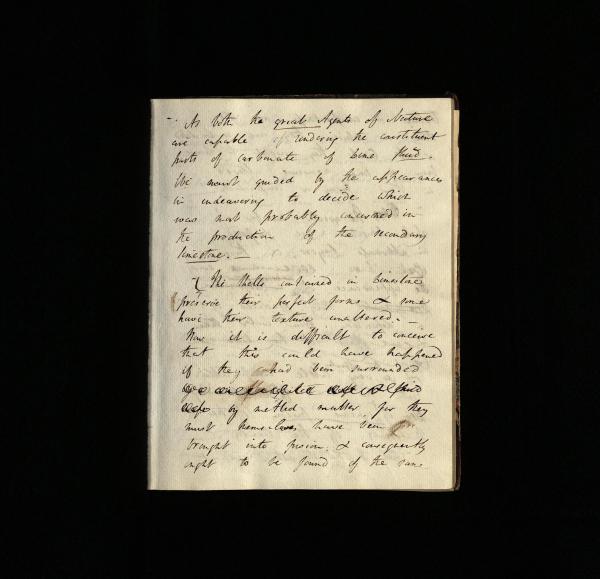 - As both the great Agents of Nature
are capable of rendering the constituent
parts of carbonate of lime fluid.
We must guided by the appearances
in endeavoring to decide which
was most probably concerned in
the production of the secondary
limestone. —
{ The shells contained in limestone
preserve their perfect forms & some
have their texture unaltered. —
Now it is difficult to conceive
that this could have happened
if they had been surrounded
by melted matter for they
must themselves have been
brought into fusion, & consequently
ought to be found of the same